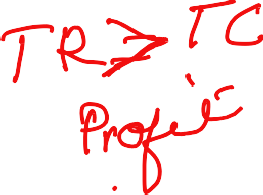 TR > TC
Profit